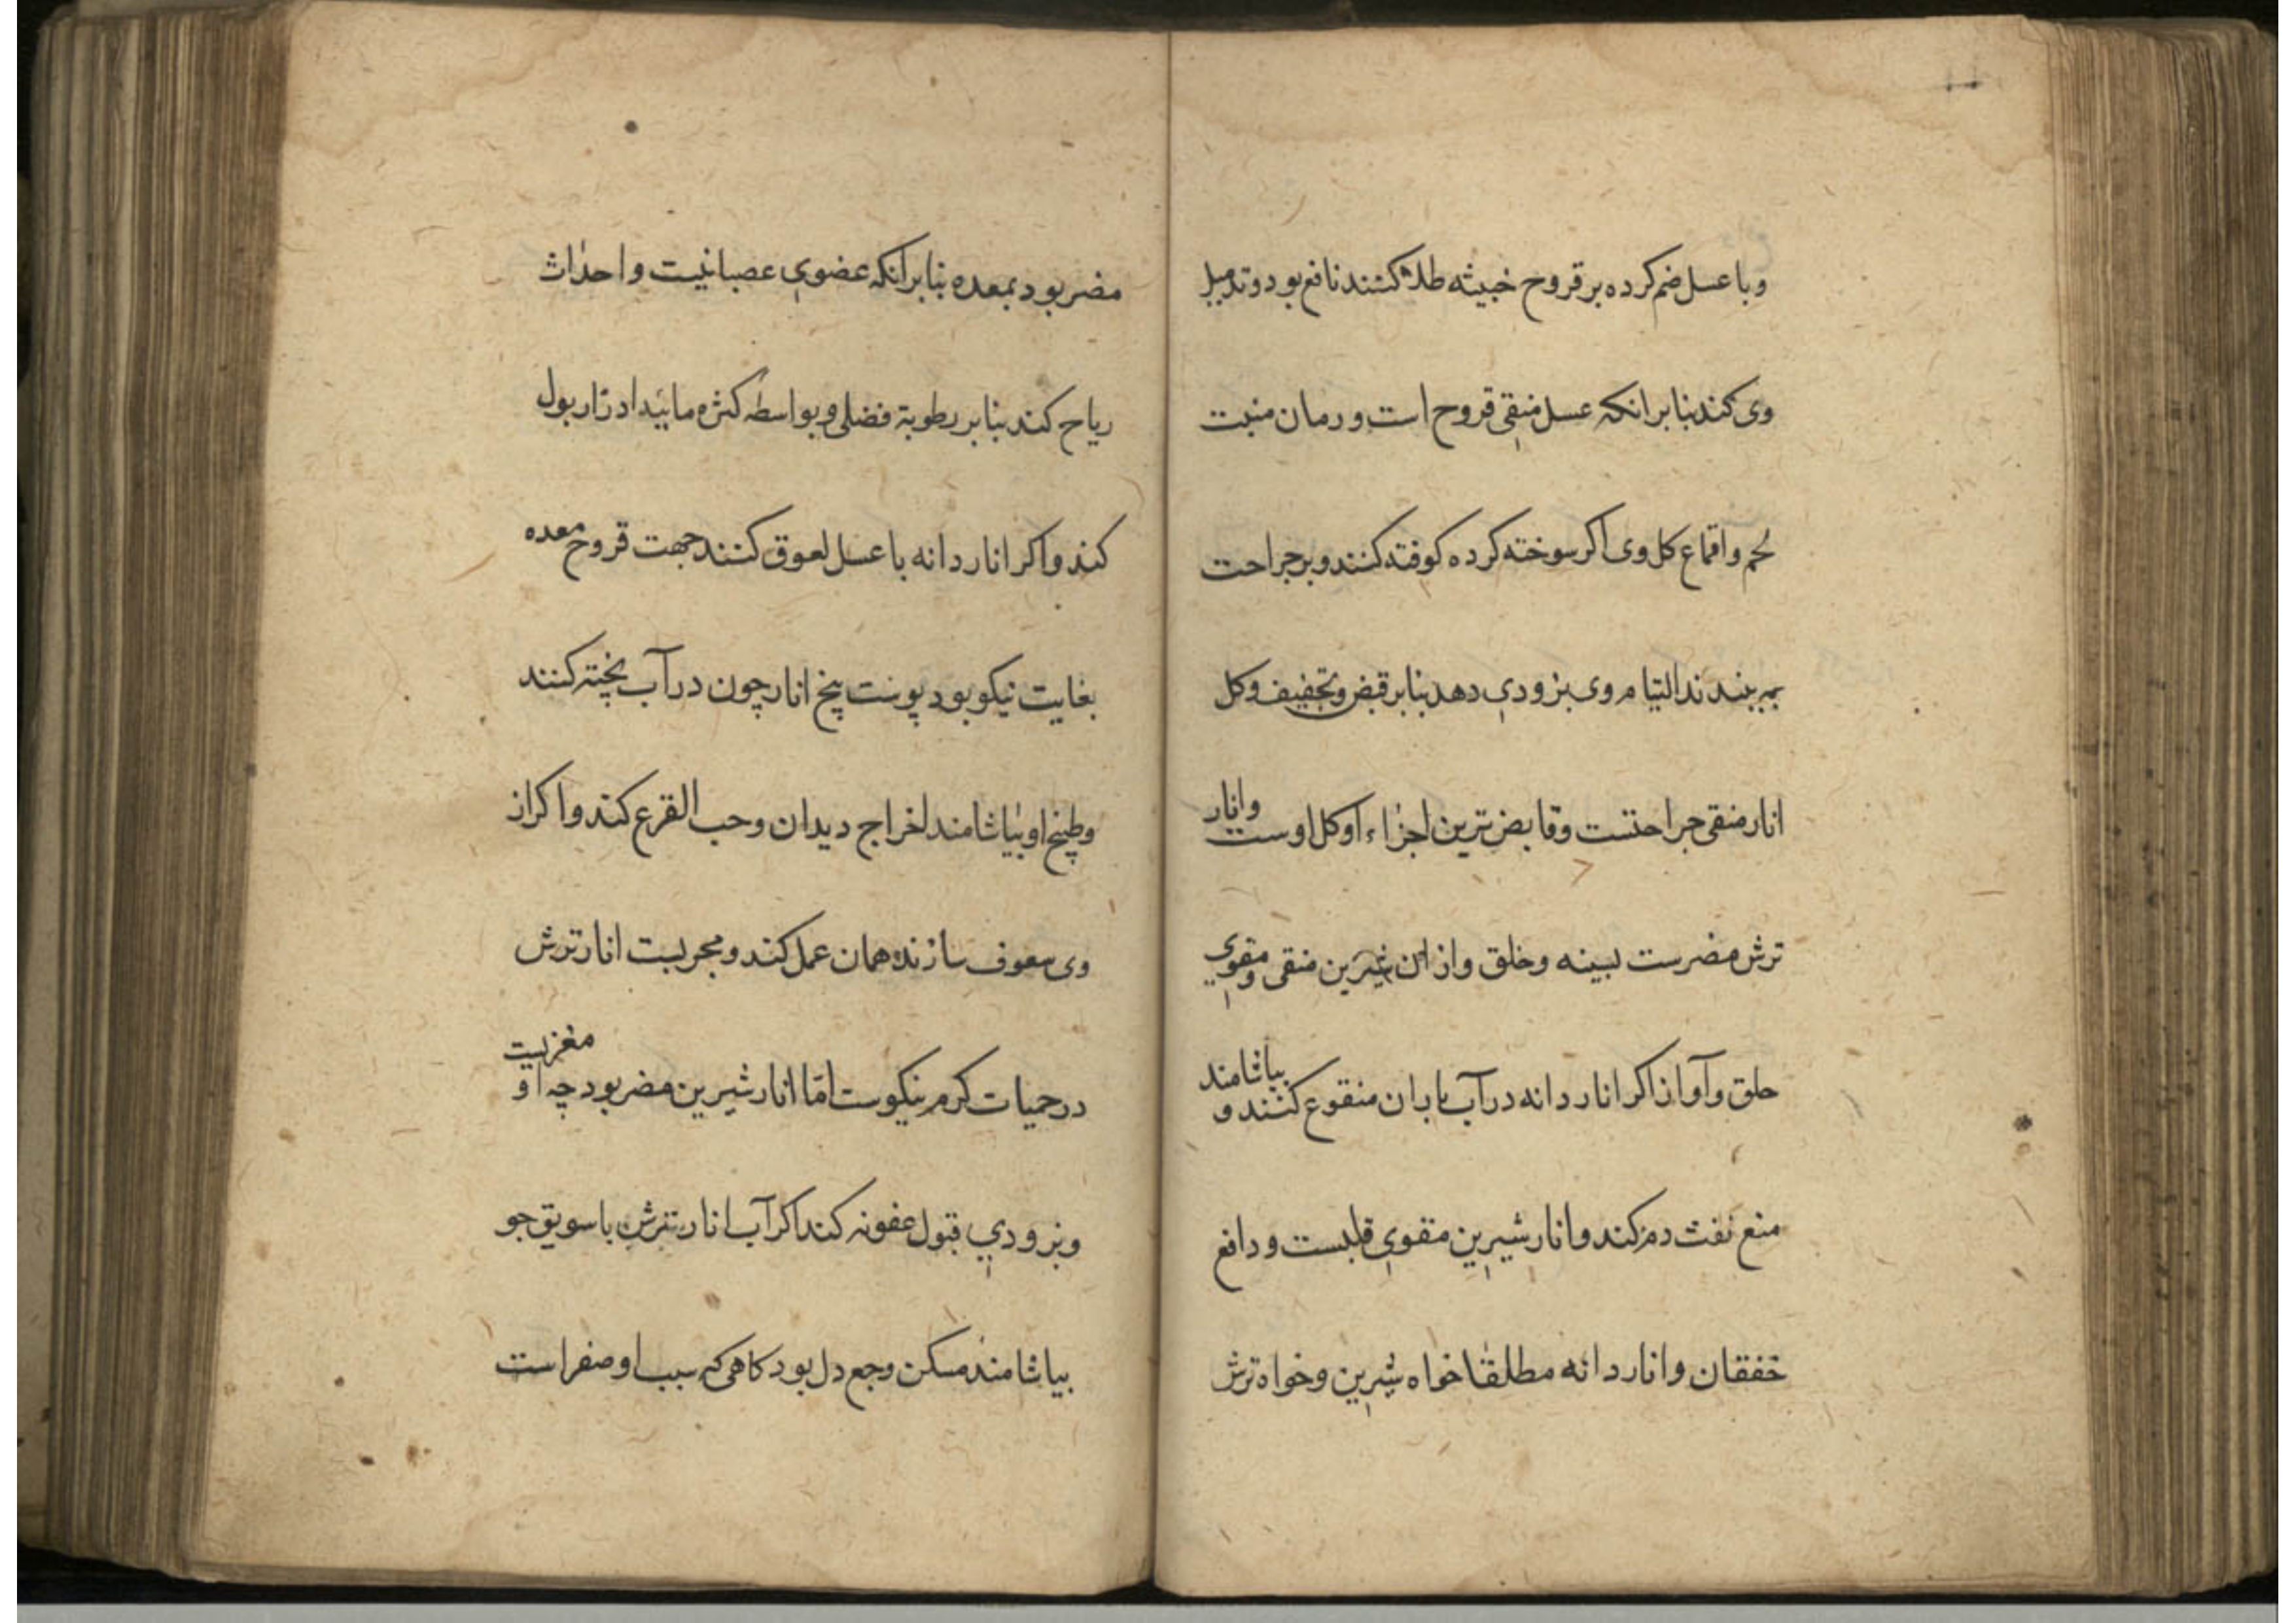 و با عسل ضم کرده بر قروح خبیثه طلا کنند نافع بود و تدمیل
وی کند بنابر انکه عسل منقی قروح است و رمان منبت
لحم و اقماع کل وی اکر سوخته کرده کوفته کنند و بر جراحت
ببندند التیام وی بزودی دهد بنابر قبض و تجفیف و کل
انار منقی جراحتست و قابض ترین اجزاء او کل اوست و انار
ترش مضرست بسینه و حلق و از ان شیرین منقی و مقوی
حلق و آواز اکر انار دانه در آب باران منقوع کنند و بیاشامند
منع نفث دم کند و انار شیرین مقوی قلبست و دافع
خفقان و انار دانه مطلقا خواه شیرین و خواه ترش
مضر بود بمعده بنابر انکه عضوی عصبانیت و احداث
ریاح کند بنابر رطوبة فضلی و بواسطه کثره مائیه ادرار بول
کند و اکر انار دانه با عسل لعوق کنند جهت قروح معده
بغایت نیکو بود پوست بیخ انار چون در آب پخته کنند
و طبیخ او بیاشامند اخراج دیدان و حب القرع کند و اکر از
وی سفوف سازند همان عمل کند و مجربست انار ترش
در حمیات کرم نیکوست امّا انار شیرین مضر بود چه او مغزیست
و بزودی قبول عفونه کند اکر آب انار ترش با سویق جو
بیاشامند مسکن وجع دل بود کاهی که سبب او صفراست